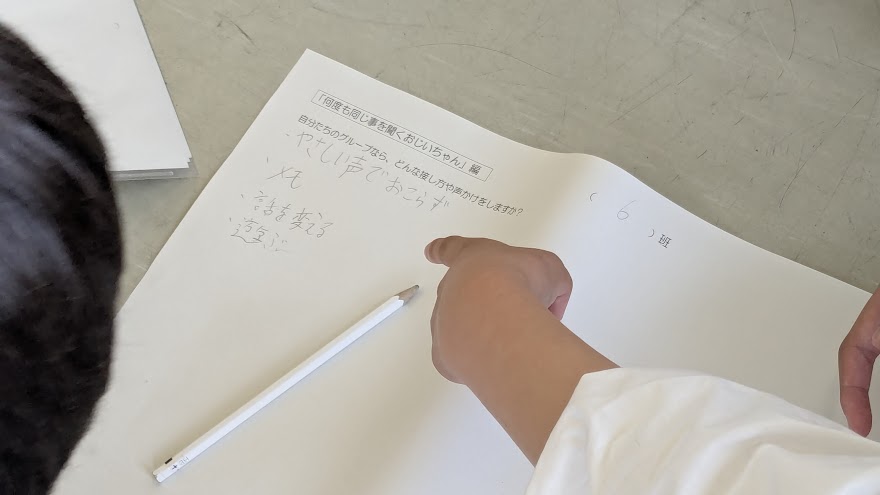 「何度も同じ事を聞くおじいちゃん」編
自分たちのグループなら、どんな接し方や声かけをしますか?
( 6 )班
・やさしい声でおこらず
・メモ
・話を変える
・遊ぶ